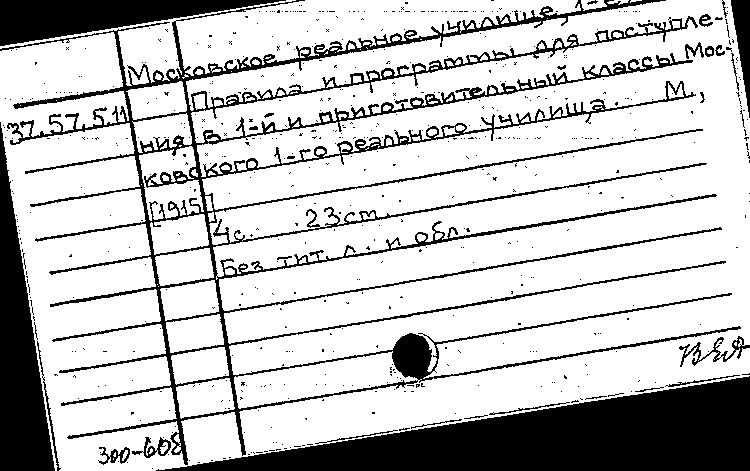 Московское реальное училище, 1-е.
Правила и программы для поступле-
37.57.5.11
ния в 1-й и приготовительный классы Мос-
ковского 1-го реального училища. М.,
[1915]
4с. 23см.
Без тит. л. и обл.
300-608